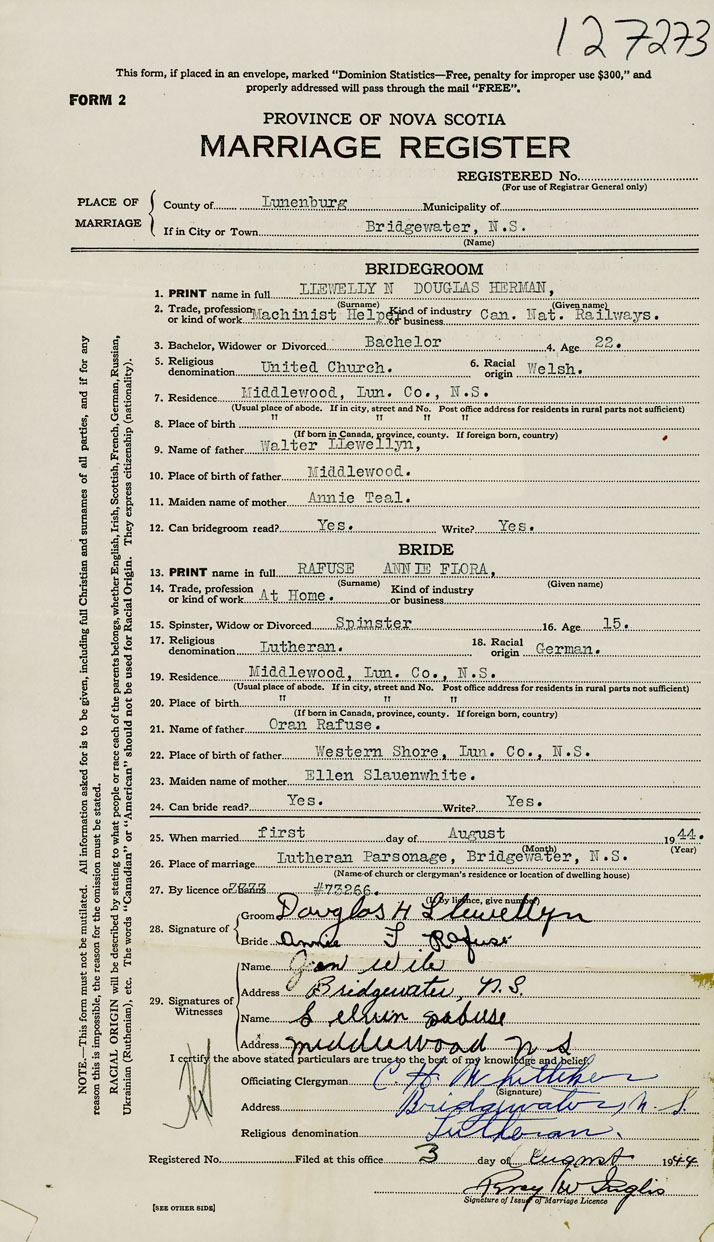 127273
This form, if placed in an envelope, marked "Dominion Statistics—Free, penalty for improper use $300," and
properly addressed will pass through the mail "FREE".
FORM 2
PROVINCE OF NOVA SCOTIA
MARRIAGE REGISTER
REGISTERED No.
(For use of Registrar General only)
PLACE OF MARRIAGE
County of Lunenburg Municipality of
If in City or Town Bridgewater, N.S.
(Name)
BRIDEGROOM
1. PRINT name in full LLEWELLY N DOUGLAS HERMAN,
(Surname) (Given name)
2. Trade, profession or kind of work Machinist Helper Kind of industry or business Can. Nat. Railways.
3. Bachelor, Widower or Divorced Bachelor 4. Age 22.
5. Religious denomination United Church. 6. Racial origin Welsh.
7. Residence Middlewood, Lun. Co., N.S.
(Usual place of abode. If in city, street and No. Post office address for residents in rural parts not sufficient)
8. Place of birth " " " "
(If born in Canada, province, county. If foreign born, country)
9. Name of father Walter LLewellyn,
10. Place of birth of father Middlewood.
11. Maiden name of mother Annie Teal.
12. Can bridegroom read? Yes. Write? Yes.
BRIDE
13. PRINT name in full RAFUSE ANNIE FLORA,
(Surname) (Given name)
14. Trade, profession or kind of work At Home. Kind of industry or business
15. Spinster, Widow or Divorced Spinster 16. Age 15.
17. Religious denomination Lutheran. 18. Racial origin German.
19. Residence Middlewood, Lun. Co., N.S.
(Usual place of abode. If in city, street and No. Post office address for residents in rural parts not sufficient)
20. Place of birth " " "
(If born in Canada, province, county. If foreign born, country)
21. Name of father Oran Rafuse.
22. Place of birth of father Western Shore, Lun. Co., N.S.
23. Maiden name of mother Ellen Slauenwhite.
24. Can bride read? Yes. Write? Yes.
25. When married first day of August 1944.
(Month) (Year)
26. Place of marriage Lutheran Parsonage, Bridgewater, N.S.
(Name of church or clergyman's residence or location of dwelling house)
27. By licence or banns #73266.
(If by licence, give number)
28. Signature of
Groom Douglas H Llewellyn
Bride Annie F Rafuse
29. Signatures of Witnesses
Name Jean Wile
Address Bridgewater, N.S.
Name
Address middlewood N S
I certify the above stated particulars are true to the best of my knowledge and belief.
Officiating Clergyman C. H. Whitteker
(Signature)
Address Bridgewater, N.S.
Religious denomination Lutheran.
Registered No. Filed at this office 3 day of August 1944
Signature of Issuer of Marriage Licence
[SEE OTHER SIDE]
NOTE.—This form must not be mutilated. All information asked for is to be given, including full Christian and surnames of all parties, and if for any
reason this is impossible, the reason for the omission must be stated.
RACIAL ORIGIN will be described by stating to what people or race each of the parents belongs, whether English, Irish, Scottish, French, German, Russian,
Ukrainian (Ruthenian), etc. The words "Canadian" or "American" should not be used for Racial Origin. They express citizenship (nationality).